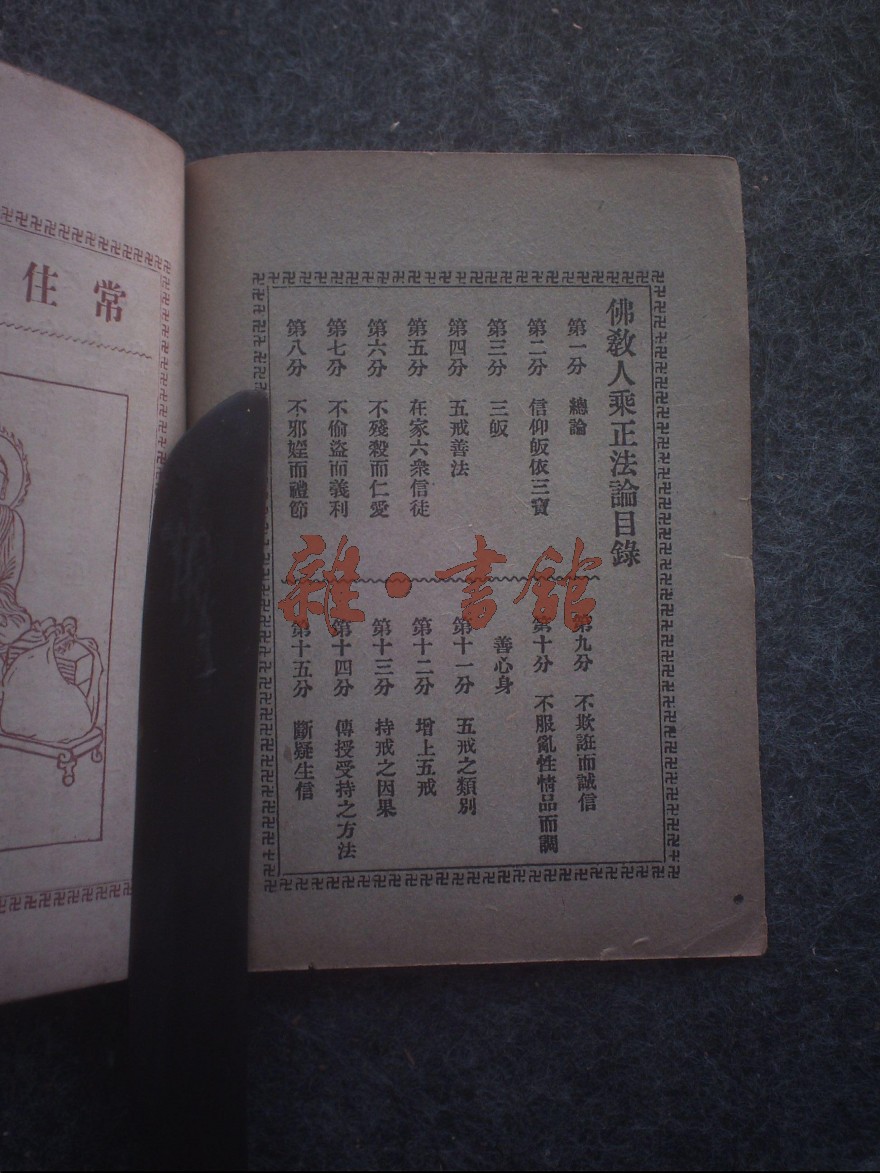 佛教人乘正法論目錄
第一分　總論
第二分　信仰皈依三寶
第三分　三皈
第四分　五戒善法
第五分　在家六衆信徒
第六分　不殘殺而仁愛
第七分　不偷盜而義利
第八分　不邪婬而禮節
第九分　不欺誑而誠信
第十分　不服亂性情品而調
善心身
第十一分　五戒之類別
第十二分　增上五戒
第十三分　持戒之因果
第十四分　傳授受持之方法
第十五分　斷疑生信
常住
雜·書館